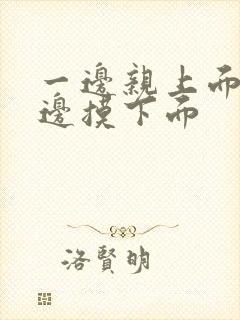 一邊親上面
邊摸下面
洛賢明